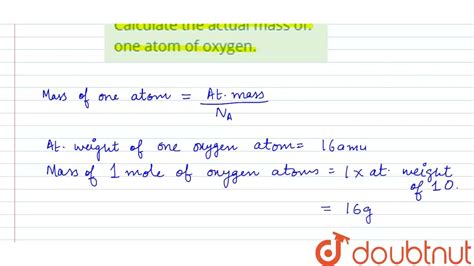 Calculate the actual mass of
one atom of oxygen.
Mass of one atom = At. mass
N_A
At. weight of one oxygen atom = 16amu
Mass of 1 mole of oxygen atoms = 1 x at. weight
of 1 O.
= 16g
doubtnut